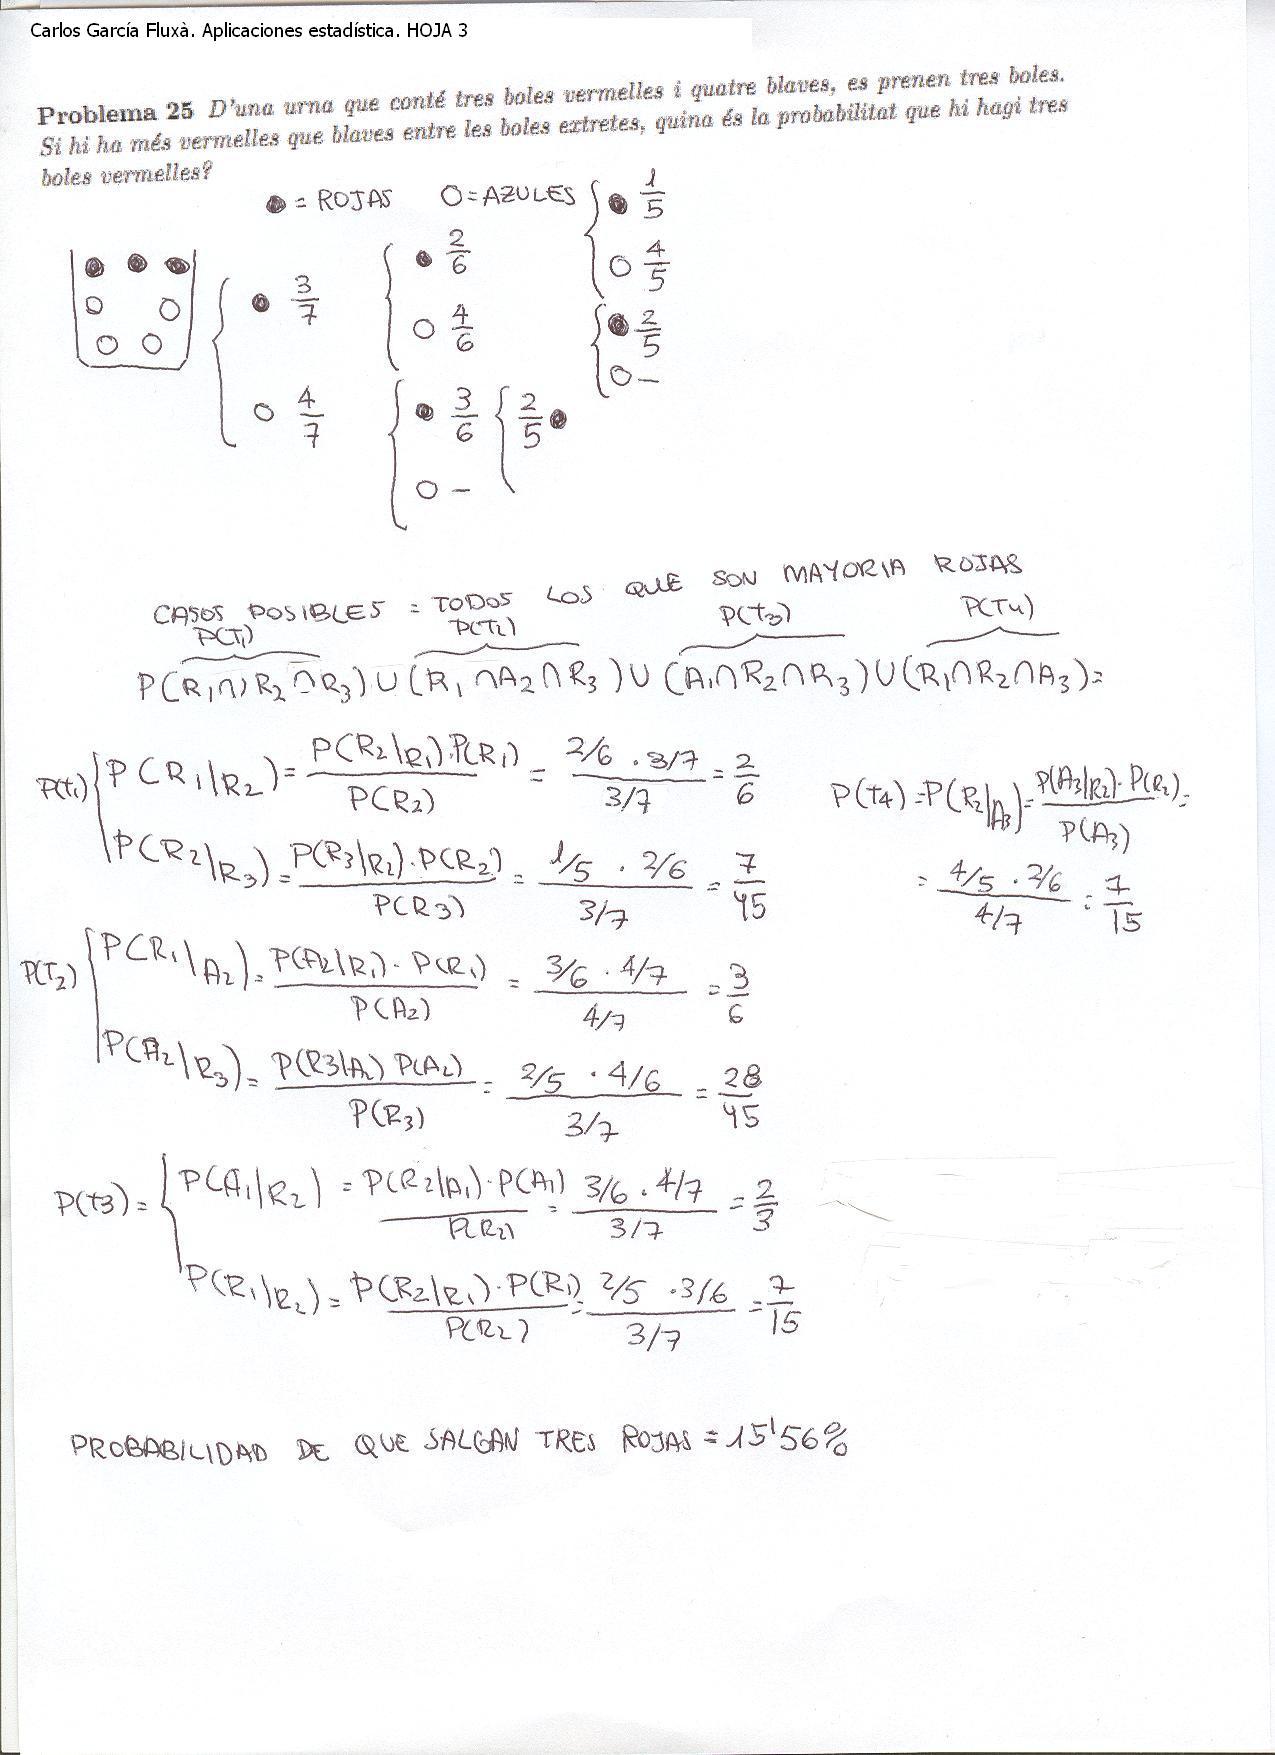 Carlos García Fluxà. Aplicaciones estadística. HOJA 3
Problema 25 D'una urna que conté tres boles vermelles i quatre blaves, es prenen tres boles.
Si hi ha més vermelles que blaves entre les boles extretes, quina és la probabilitat que hi hagi tres
boles vermelles?
● = ROJAS O = AZULES
● 1/5
O 4/5
● 2/6
O 4/6
● 2/5
O -
● 3/7
O 4/7
● 3/6
O -
2/5 ●
CASOS POSIBLES = TODOS LOS QUE SON MAYORIA ROJAS
P(T1) P(T2) P(T3) P(T4)
P(R1∩)R2∩R3)U(R1∩A2∩R3)U(A1∩R2∩R3)U(R1∩R2∩A3)=
P(T1) { P(R1|R2) = P(R2|R1)·P(R1) / P(R2) = 2/6 · 3/7 / 3/7 = 2/6
P(R2|R3) = P(R3|R2)·P(R2) / P(R3) = 1/5 · 2/6 / 3/7 = 7/45
P(T4) = P(R2|A3) = P(A3|R2)·P(R2) / P(A3) =
= 4/5 · 2/6 / 4/7 = 7/15
P(T2) { P(R1|A2) = P(A2|R1)·P(R1) / P(A2) = 3/6 · 4/7 / 4/7 = 3/6
P(A2|R3) = P(R3|A2) P(A2) / P(R3) = 2/5 · 4/6 / 3/7 = 28/45
P(T3) = { P(A1|R2) = P(R2|A1)·P(A1) / P(R2) = 3/6 · 4/7 / 3/7 = 2/3
P(R1|R2) = P(R2|R1)·P(R1) / P(R2) = 2/5 · 3/6 / 3/7 = 7/15
PROBABILIDAD DE QUE SALGAN TRES ROJAS = 15'56%